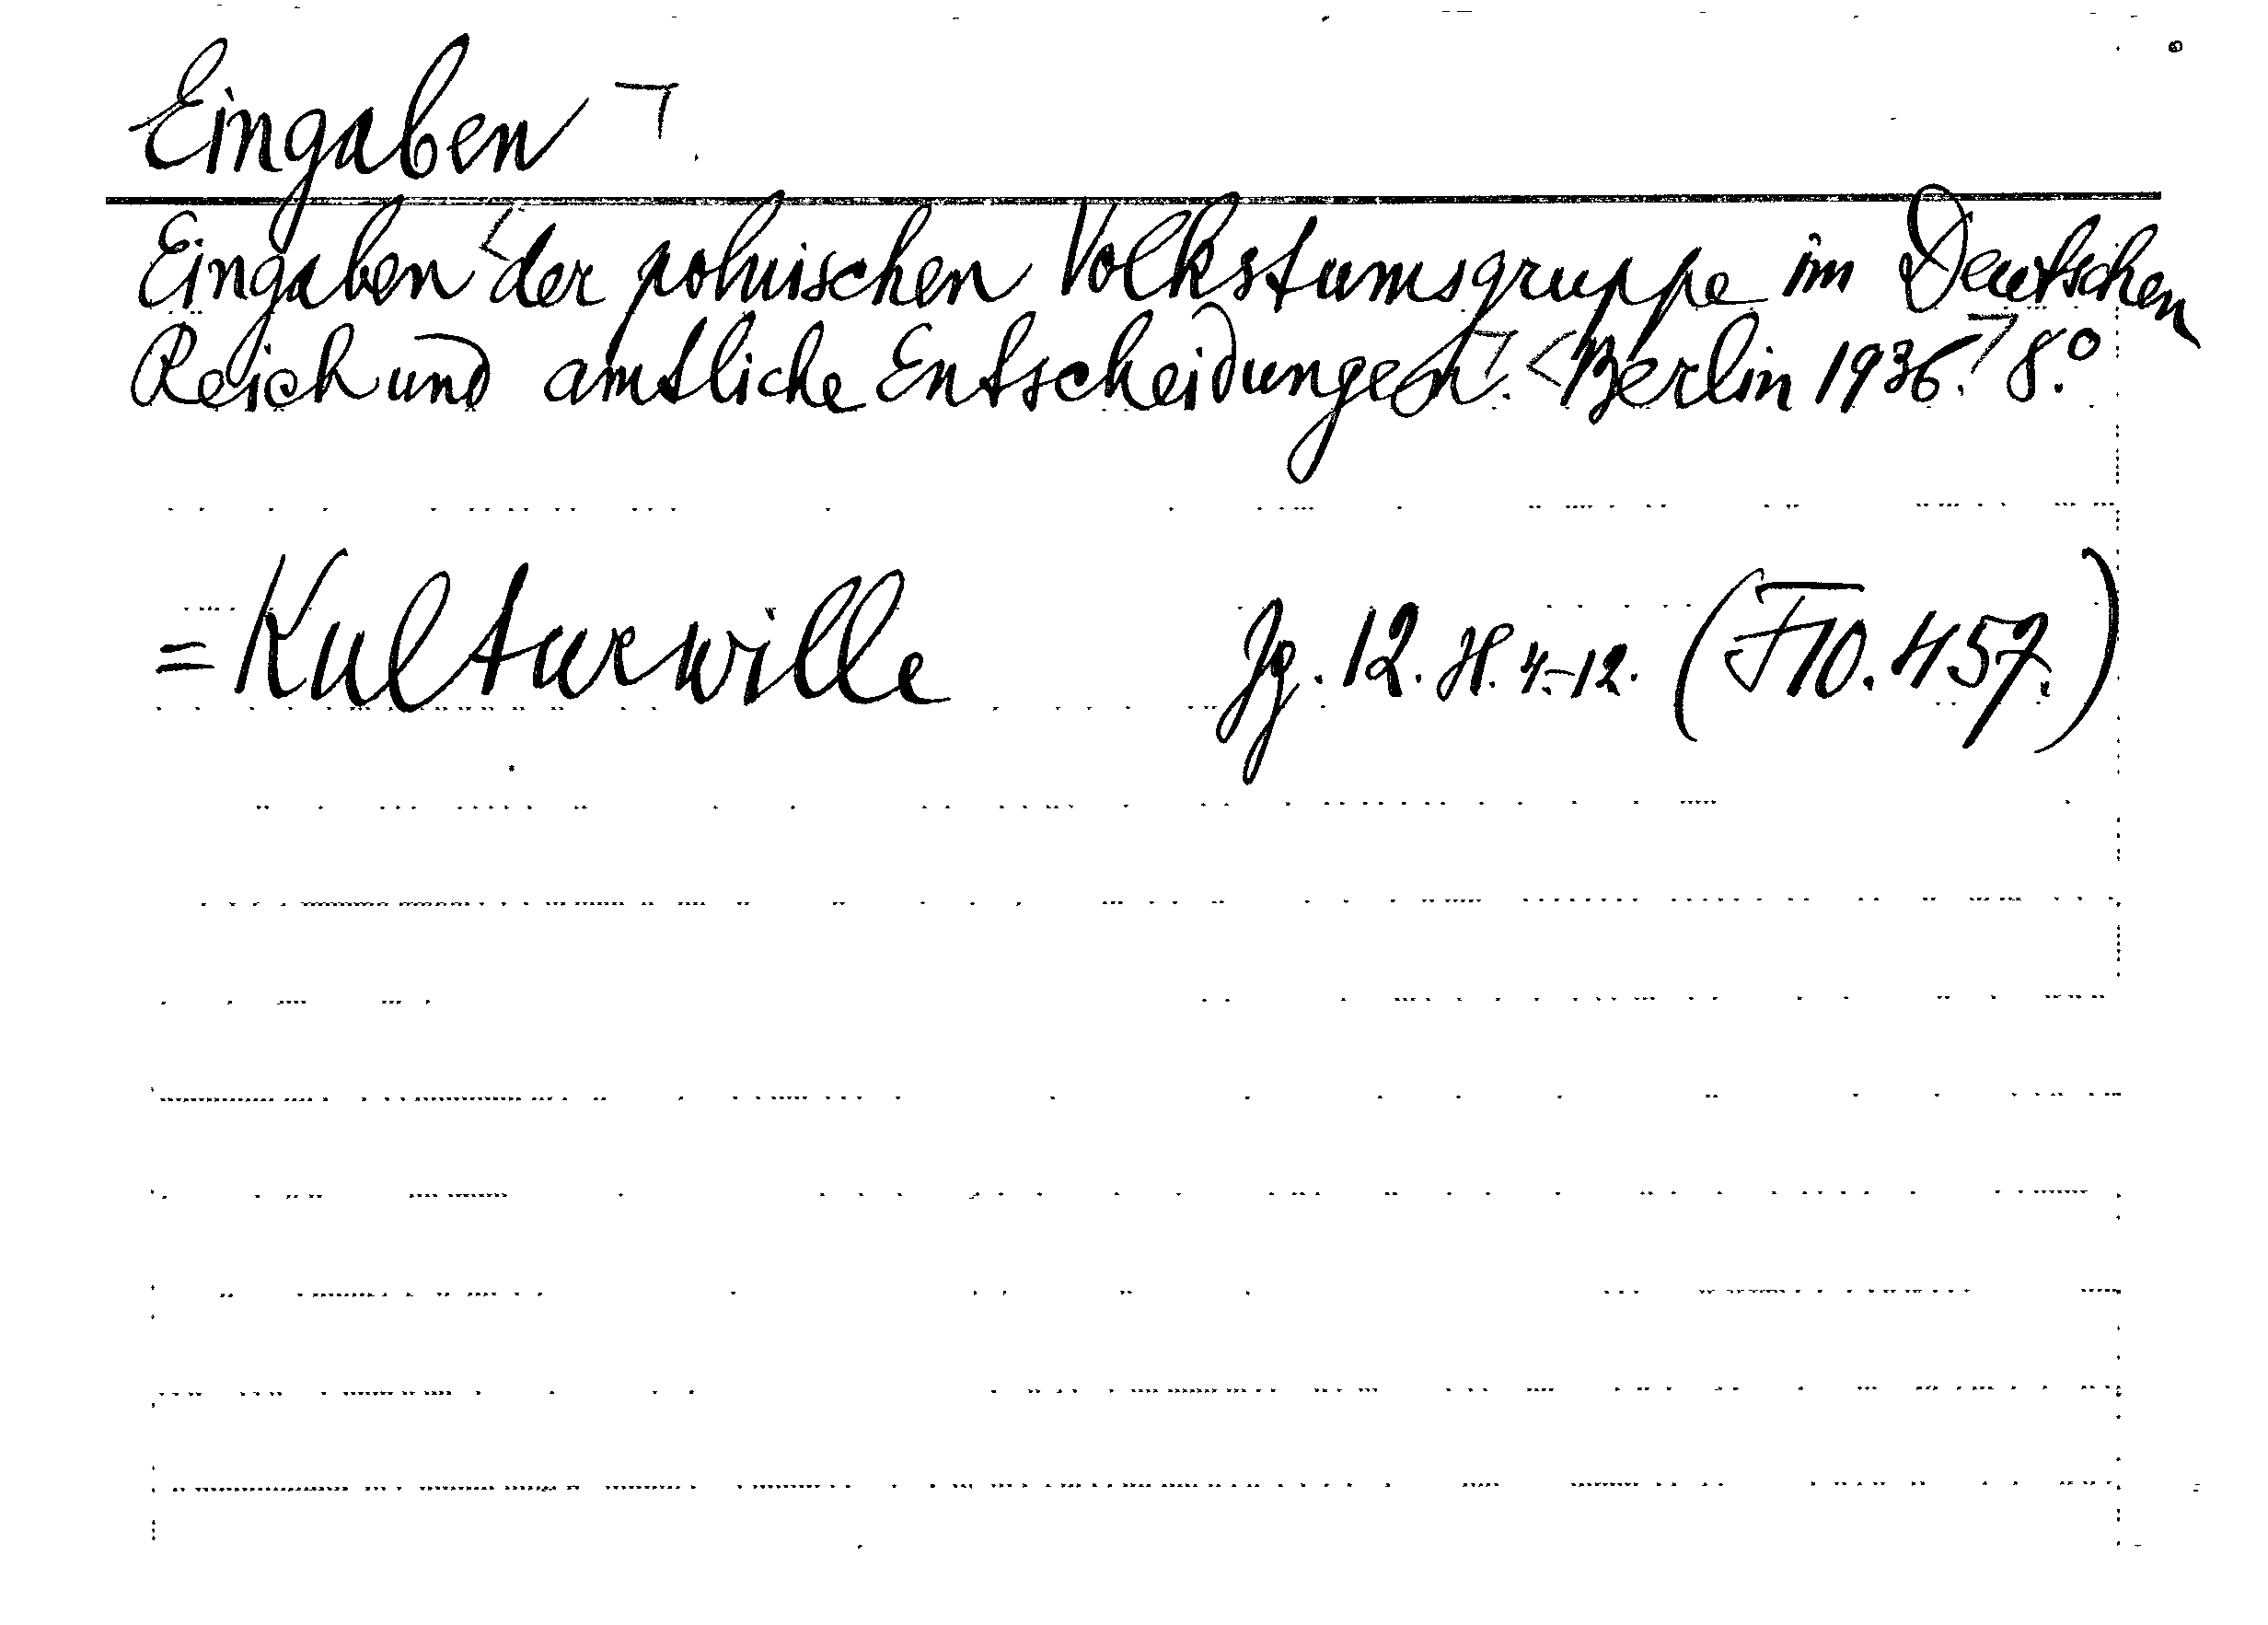 Eingaben
Eingaben der polnischen Volkstumsgruppe im Deutschen
Reich und amtliche Entscheidungen. Berlin 1936. 8.°
= Kulturwille Jg. 12. H. 4.-12. (F10.457.)